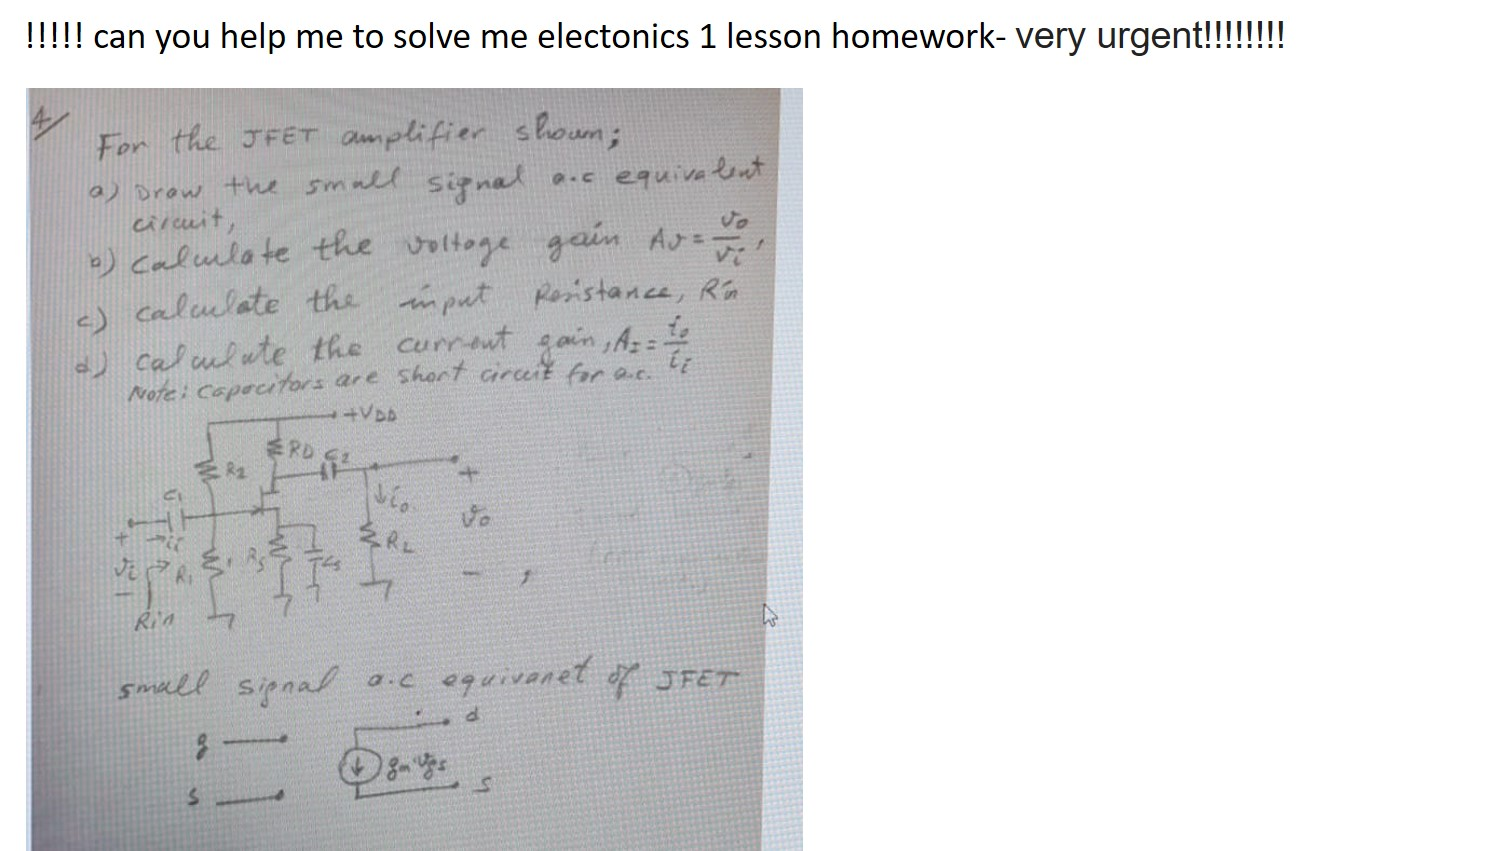 !!!!! can you help me to solve me electonics 1 lesson homework- very urgent!!!!!!!!
4/
For the JFET amplifier shown;
a) Draw the small signal a.c equivalent
circuit,
b) calculate the voltage gain Av = vo/vi,
c) calculate the input Resistance, Rin
d) calculate the current gain, AI = io/ii
Note: Capacitors are short circuit for a.c.
+VDD
RD C2
R2
C1
io
+
+ ii
vo
RL
vi R1 Rs Cs
-
-
Rin
small signal a.c equivanet of JFET
d
g
gm vgs
s
s